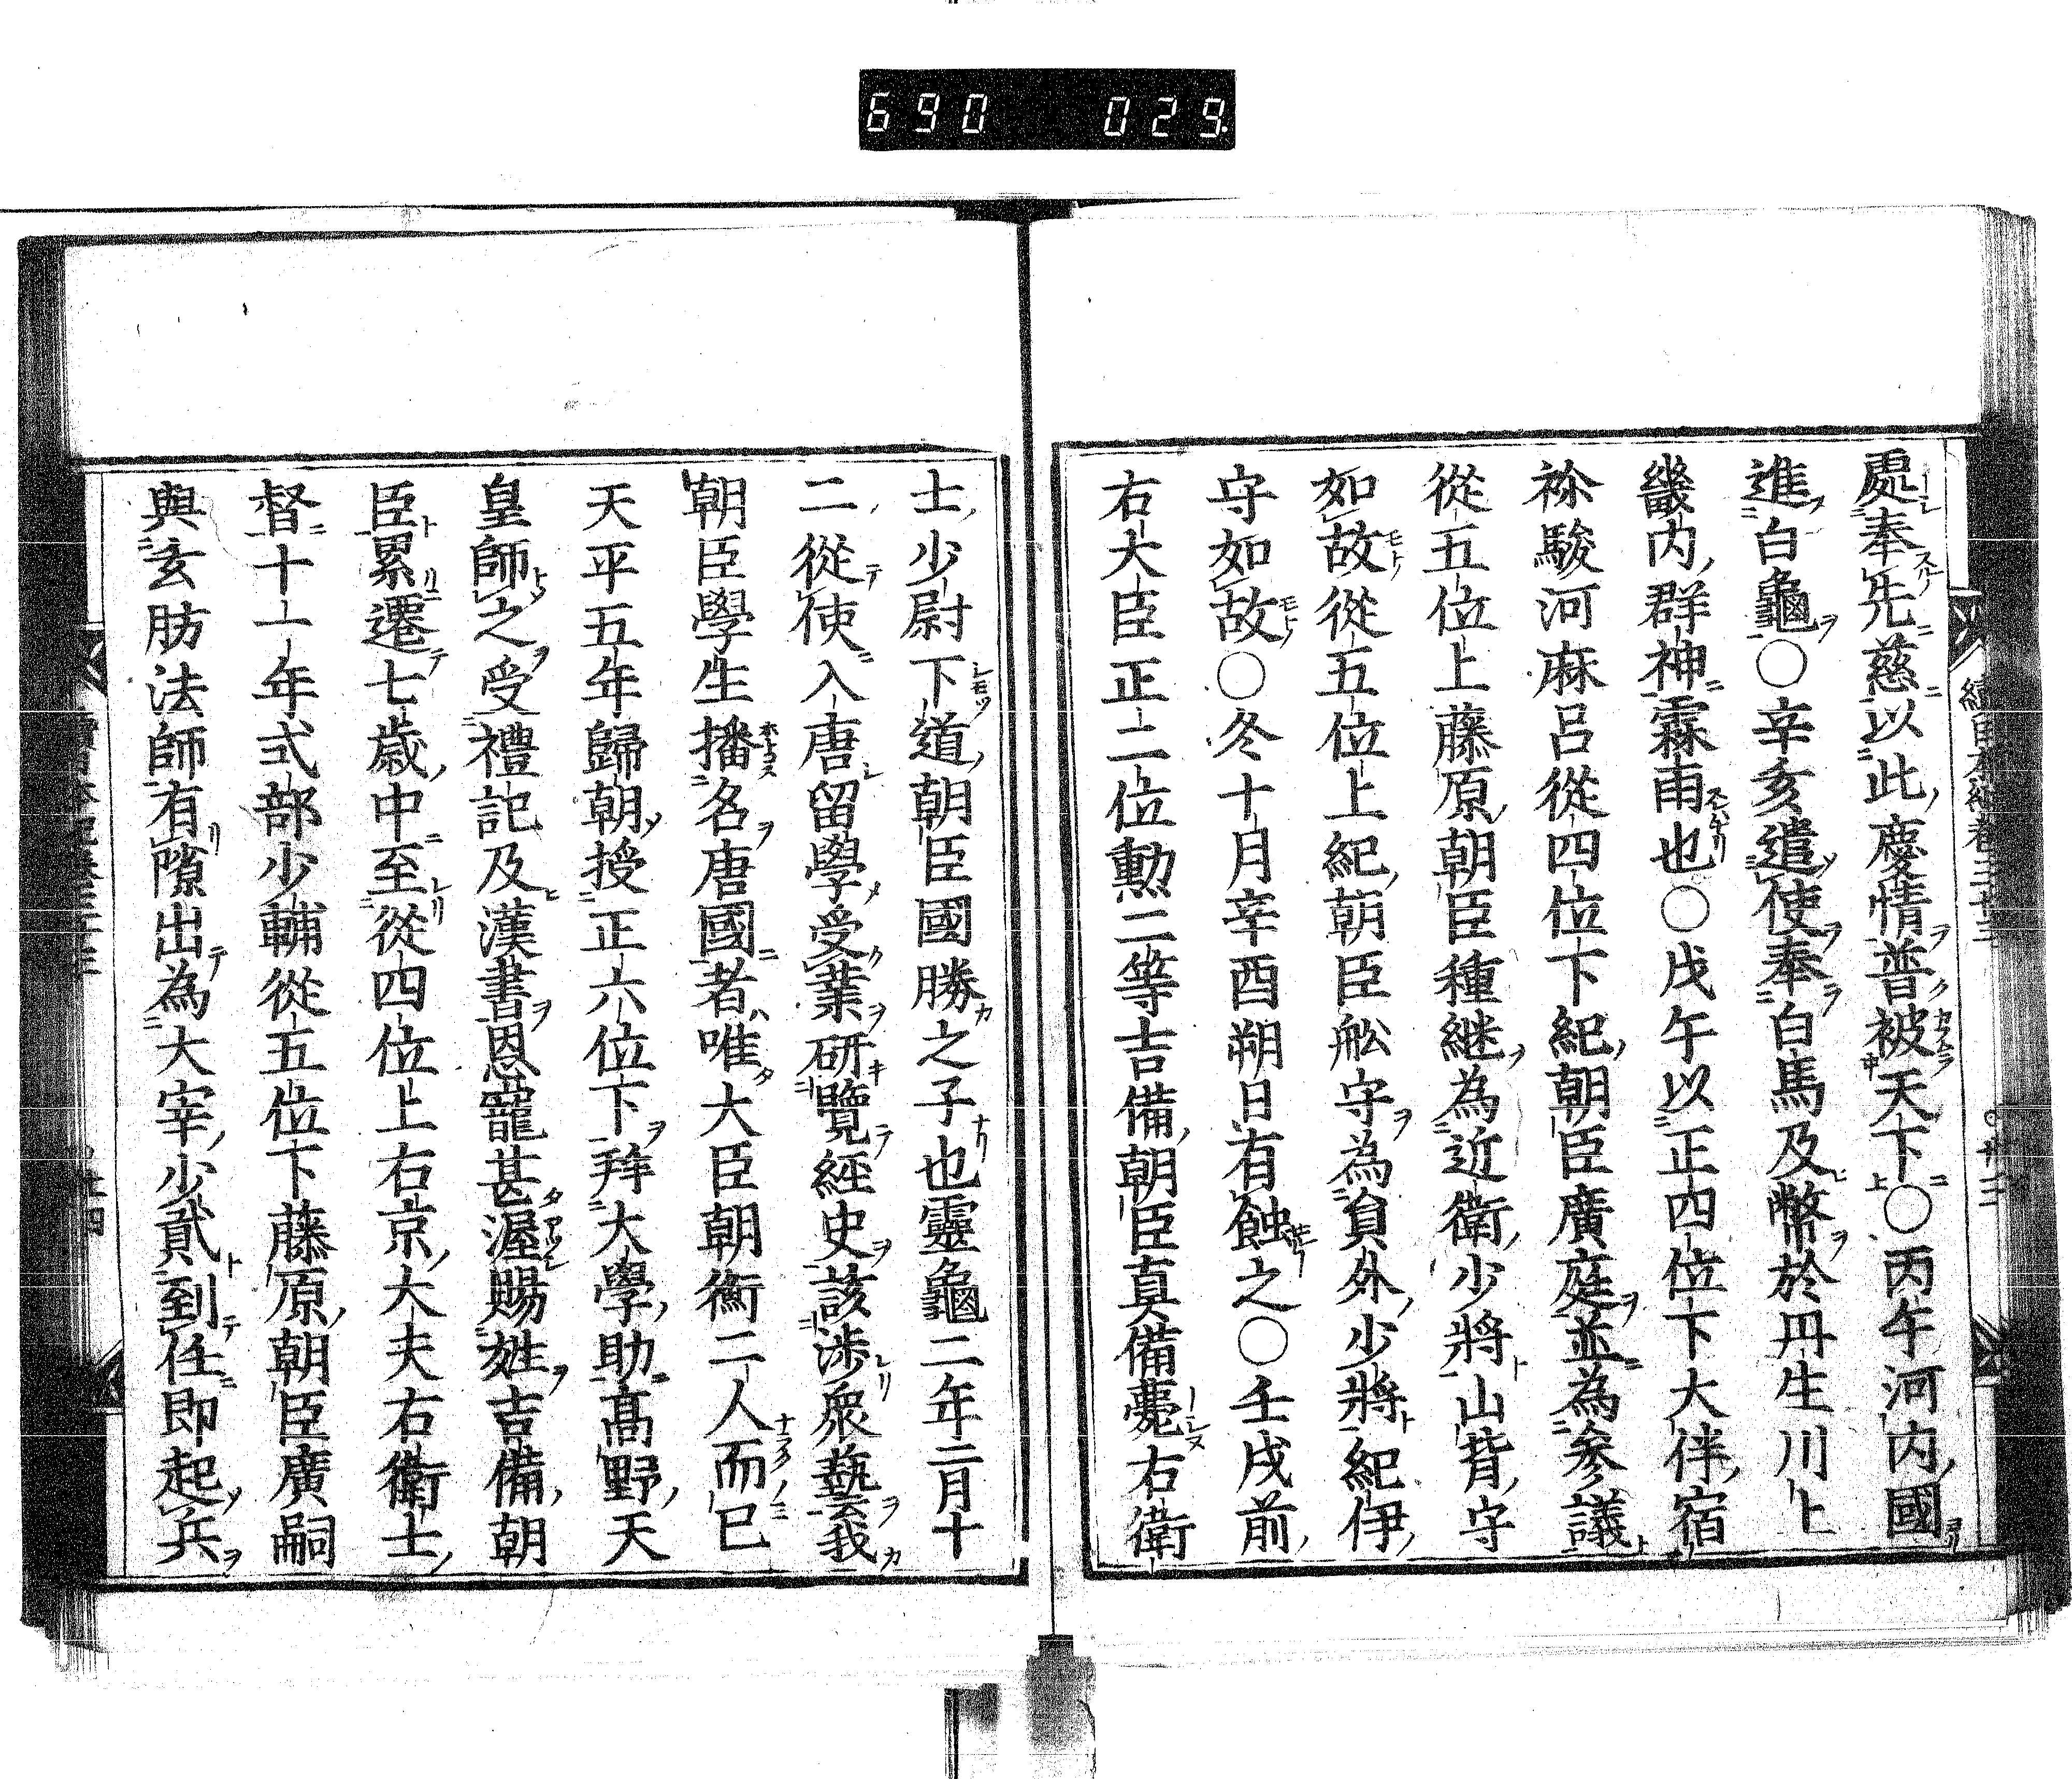 690 029
處奉先慈以此慶情普被天下○丙午河内國
進白龜○辛亥遣使奉白馬及幣於丹生川上
畿内群神霖雨也○戊午以正四位下大伴宿
祢駿河麻呂從四位下紀朝臣廣庭並為參議
從五位上藤原朝臣種継為近衛少將山背守
如故從五位上紀朝臣舩守為貟外少將紀伊
守如故○冬十月辛酉朔日有蝕之○壬戌前
右大臣正二位勳二等吉備朝臣真備薨右衛
士少尉下道朝臣國勝之子也靈龜二年二月十
二從使入唐留學受業研覽經史該渉衆藝我
朝臣學生播名唐國者唯大臣朝衡二人而已
天平五年歸朝授正六位下拜大學助髙野天
皇師之受禮記及漢書恩寵甚渥賜姓吉備朝
臣累遷七歳中至從四位上右京大夫右衛士
督十一年式部少輔從五位下藤原朝臣廣嗣
與玄肪法師有隙出為大宰少貳到任即起兵